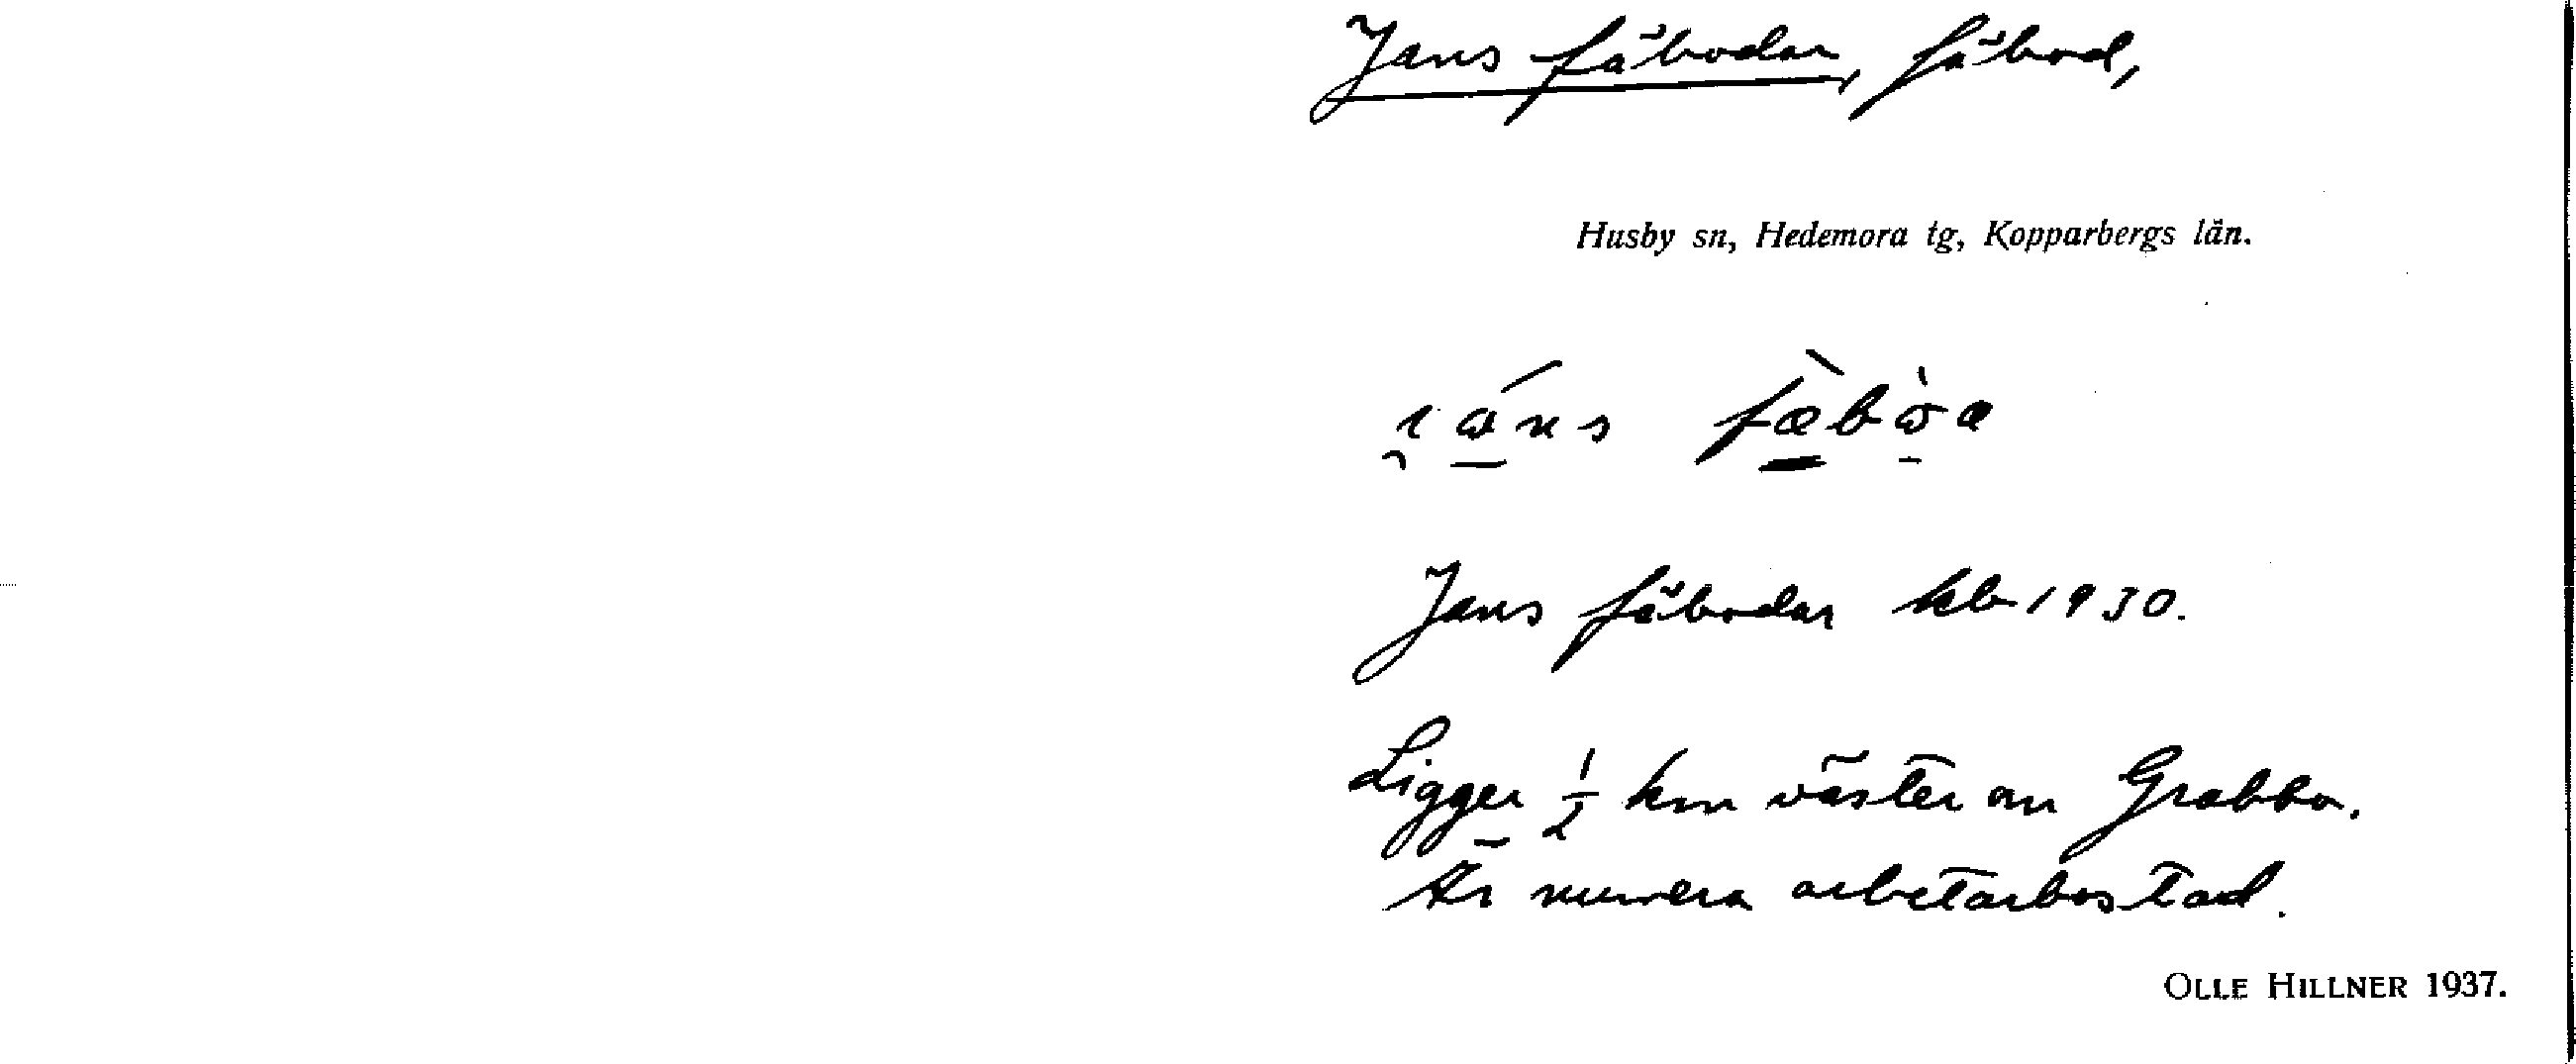 Jans fäbodar, fäbod,
Husby sn, Hedemora tg, Kopparbergs län.
Jans fäbodar kb 1930.
Ligger ½ km väster om Grabbo.
Är numera arbetarbostad.
OLLE HILLNER 1937.